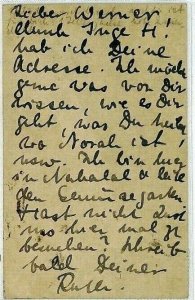 Lieber Werner
durch Inge H.
hab ich Deine
Adresse. Ich möcht
gerne was von Dir
wissen, wie es Dir
geht, was Du
wo Norah ist,
usw. Ich bin hier
in Nahalal & leite
den Gemüsegarten
Hast nicht Lust
uns hier mal zu
besuchen? Schreib
bald Deiner
Ruth.